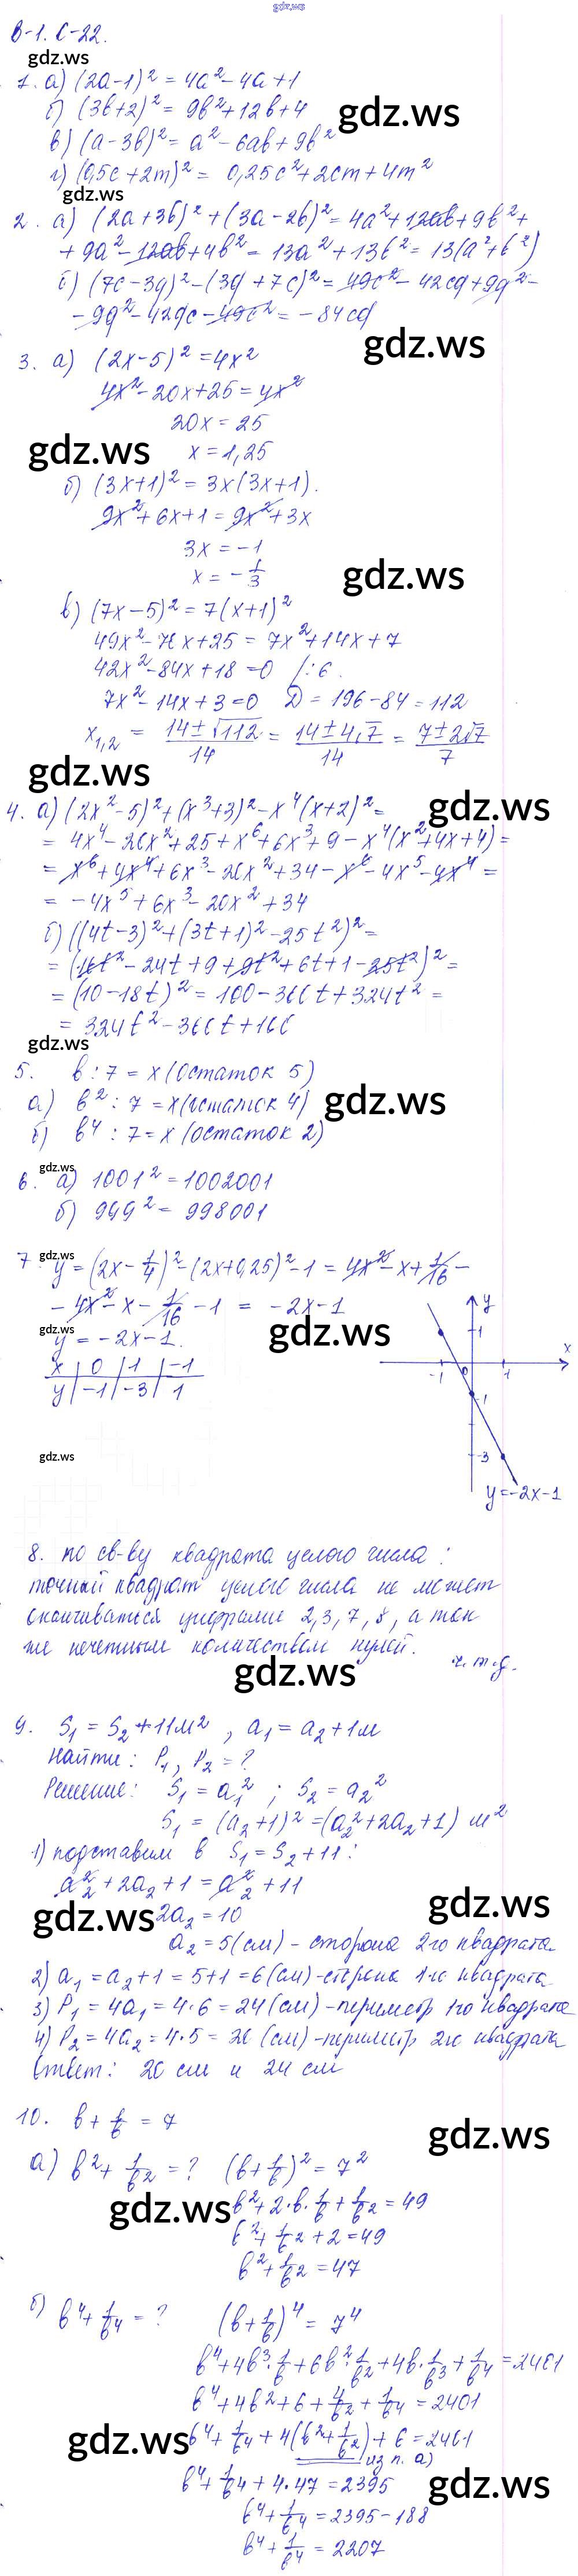 gdz.ws
В-1. С-22.
gdz.ws
1. а) (2a-1)² = 4a² - 4a + 1
б) (3b+2)² = 9b² + 12b + 4
gdz.ws
в) (a-3b)² = a² - 6ab + 9b²
г) (0,5c + 2m)² = 0,25c² + 2cm + 4m²
gdz.ws
2. а) (2a+3b)² + (3a-2b)² = 4a² + 12ab + 9b² +
+ 9a² - 12ab + 4b² = 13a² + 13b² = 13(a²+b²)
б) (7c-3d)² - (3d+7c)² = 49c² - 42cd + 9d² -
- 9d² - 42dc - 49c² = -84cd
gdz.ws
3. а) (2x-5)² = 4x²
4x² - 20x + 25 = 4x²
20x = 25
gdz.ws
x = 1,25
б) (3x+1)² = 3x(3x+1).
9x² + 6x + 1 = 9x² + 3x
3x = -1
x = -1/3
gdz.ws
в) (7x-5)² = 7(x+1)²
49x² - 70x + 25 = 7x² + 14x + 7
42x² - 84x + 18 = 0 /:6.
7x² - 14x + 3 = 0 D = 196 - 84 = 112
x₁,₂ = (14±√112)/14 = (14±4√7)/14 = (7±2√7)/7
gdz.ws
gdz.ws
4. а) (2x²-5)² + (x³+3)² - x⁴(x+2)² =
= 4x⁴ - 20x² + 25 + x⁶ + 6x³ + 9 - x⁴(x²+4x+4) =
= x⁶ + 4x⁴ + 6x³ - 20x² + 34 - x⁶ - 4x⁵ - 4x⁴ =
= -4x⁵ + 6x³ - 20x² + 34
б) ((4t-3)² + (3t+1)² - 25t²)² =
= (16t² - 24t + 9 + 9t² + 6t + 1 - 25t²)² =
= (10-18t)² = 100 - 360t + 324t² =
= 324t² - 360t + 100
gdz.ws
5. b : 7 = x (остаток 5)
а) b² : 7 = x (остаток 4)
gdz.ws
б) b⁴ : 7 = x (остаток 2)
gdz.ws
6. а) 1001² = 1002001
б) 999² = 998001
gdz.ws
7. y = (2x - 1/4)² - (2x+0,25)² - 1 = 4x² - x + 1/16 -
- 4x² - x - 1/16 - 1 = -2x - 1
gdz.ws
gdz.ws
y = -2x - 1.
x | 0 | 1 | -1
y | -1 | -3 | 1
y
1
x
-1 0 1
-1
-3
y = -2x-1
gdz.ws
8. по св-ву квадрата целого числа:
точный квадрат целого числа не может
оканчиваться цифрами 2, 3, 7, 8, а так
же нечетным количеством нулей.
ч.т.д.
gdz.ws
9. S₁ = S₂ + 11м², a₁ = a₂ + 1м
Найти: P₁, P₂ = ?
Решение: S₁ = a₁² ; S₂ = a₂²
S₁ = (a₂+1)² = (a₂² + 2a₂ + 1) м²
1) подставим в S₁ = S₂ + 11:
a₂² + 2a₂ + 1 = a₂² + 11
gdz.ws
gdz.ws
2a₂ = 10
a₂ = 5 (см) - сторона 2-го квадрата.
2) a₁ = a₂ + 1 = 5 + 1 = 6 (см) - сторона 1-го квадрата
3) P₁ = 4a₁ = 4·6 = 24 (см) - периметр 1го квадрата
4) P₂ = 4a₂ = 4·5 = 20 (см) - периметр 2го квадрата
Ответ: 20 см и 24 см
10. b + 1/b = 7
gdz.ws
а) b² + 1/b² = ? (b + 1/b)² = 7²
gdz.ws
b² + 2·b·1/b + 1/b² = 49
b² + 1/b² + 2 = 49
b² + 1/b² = 47
б) b⁴ + 1/b⁴ = ? (b + 1/b)⁴ = 7⁴
b⁴ + 4b³·1/b + 6b²·1/b² + 4b·1/b³ + 1/b⁴ = 2401
b⁴ + 4b² + 6 + 4/b² + 1/b⁴ = 2401
gdz.ws
b⁴ + 1/b⁴ + 4(b² + 1/b²) + 6 = 2401
из п. а)
b⁴ + 1/b⁴ + 4·47 = 2395
gdz.ws
b⁴ + 1/b⁴ = 2395 - 188
b⁴ + 1/b⁴ = 2207